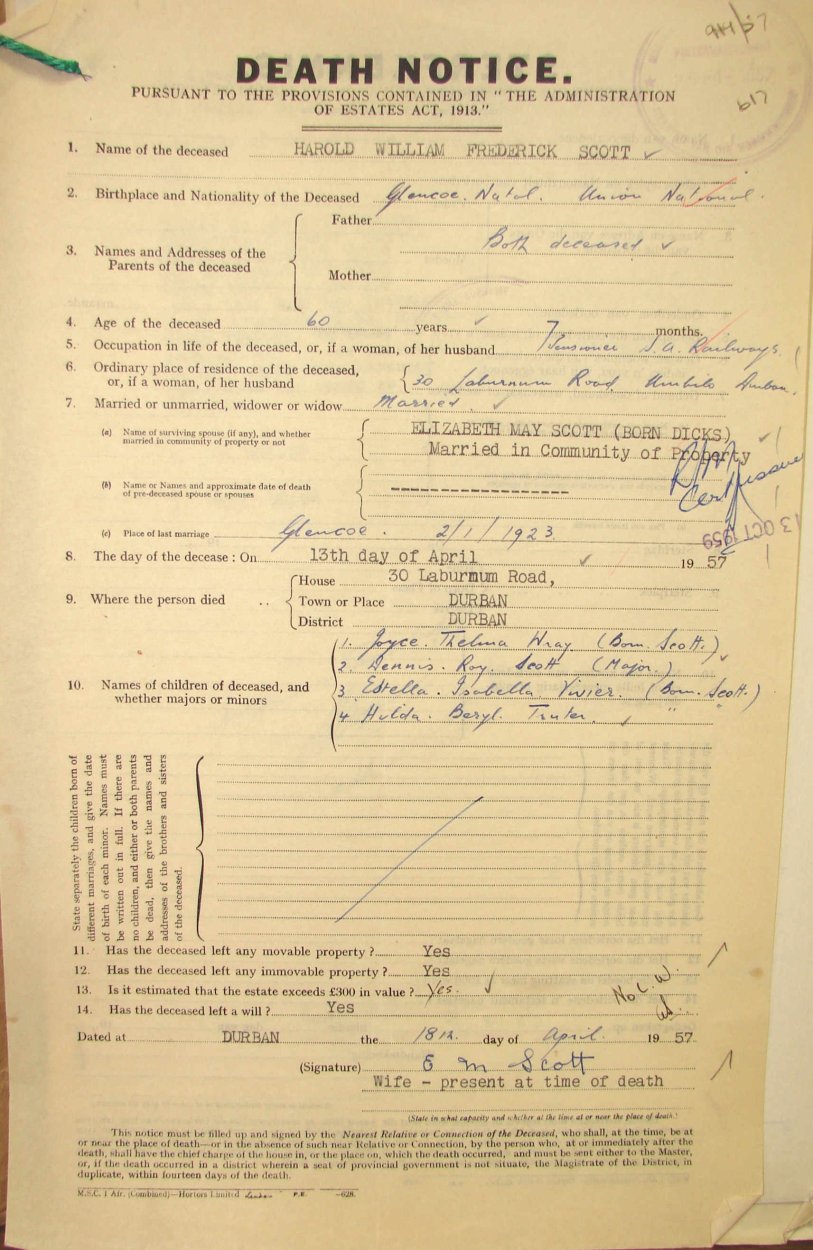 944/57
617
DEATH NOTICE.
PURSUANT TO THE PROVISIONS CONTAINED IN "THE ADMINISTRATION
OF ESTATES ACT, 1913."
1. Name of the deceased HAROLD WILLIAM FREDERICK SCOTT
2. Birthplace and Nationality of the Deceased Glencoe. Natal. Union National.
3. Names and Addresses of the Parents of the deceased
Father
Both deceased
Mother
4. Age of the deceased 60 years 7 months.
5. Occupation in life of the deceased, or, if a woman, of her husband Pensioner S.A. Railways.
6. Ordinary place of residence of the deceased, or, if a woman, of her husband
30 Laburnum Road, Umbilo Durban.
7. Married or unmarried, widower or widow Married
(a) Name of surviving spouse (if any), and whether married in community of property or not
ELIZABETH MAY SCOTT (BORN DICKS)
Married in Community of Property
(b) Name or Names and approximate date of death of pre-deceased spouse or spouses
---------------------
(c) Place of last marriage Glencoe. 2/1/1923.
13 OCT 1959
8. The day of the decease : On 13th day of April 1957
9. Where the person died ..
House 30 Laburmum Road,
Town or Place DURBAN
District DURBAN
10. Names of children of deceased, and whether majors or minors
1. Joyce. Thelma Wray (Born. Scott.)
2. Dennis. Roy. Scott (Major.)
3 Estella. Isabella Vivier. (Born. Scott.)
4. Hulda. Beryl. Truter. " "
State separately the children born of
different marriages, and give the date
of birth of each minor. Names must
be written out in full. If there are
no children, and either or both parents
be dead, then give the names and
addresses of the brothers and sisters
of the deceased.
11. Has the deceased left any movable property ? Yes
12. Has the deceased left any immovable property ? Yes
13. Is it estimated that the estate exceeds £300 in value ? Yes.
14. Has the deceased left a will ? Yes
Dated at DURBAN the 18th day of April. 1957.
(Signature) E M Scott
Wife - present at time of death
(State in what capacity and whether at the time at or near the place of death.)
This notice must be filled up and signed by the Nearest Relative or Connection of the Deceased, who shall, at the time, be at
or near the place of death—or in the absence of such near Relative or Connection, by the person who, at or immediately after the
death, shall have the chief charge of the house in, or the place on, which the death occurred, and must be sent either to the Master,
or, if the death occurred in a district wherein a seat of provincial government is not situate, the Magistrate of the District, in
duplicate, within fourteen days of the death.
M.S.C. 1 Afr. (Combined)—Hortors Limited P.E. —628.